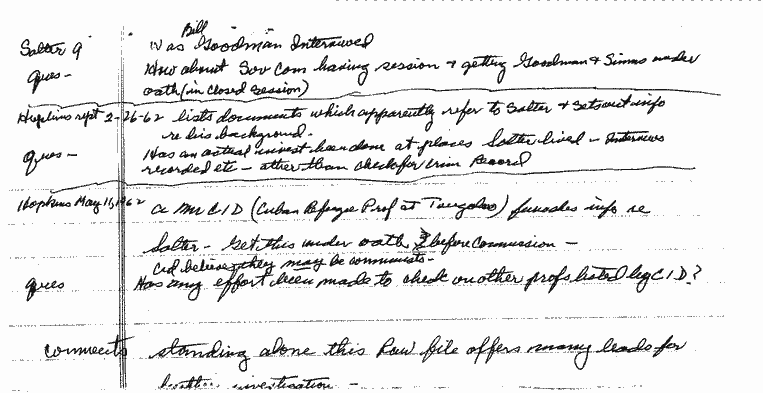 Bill
Salter 9 Was Goodman Interviewed
ques - How about Sov Com having session & getting Goodman & Simms under
oath (in closed session)
Hopkins rept 2-26-62 lists documents which apparently refer to Salter & sets out info
re his background.
ques - Has an actual invest been done at places Salter lived - Interviews
recorded etc - other than check for crim Record
Hopkins May 11, 1962 a Mr CID (Cuban Refugee Prof at Tougaloo) furnishes info re
Salter - Get this under oath & before Commission -
Cid believes they may be communists -
ques Has any effort been made to check on other profs listed by CID?
comments standing alone this Raw file offers many leads for
further investigation -